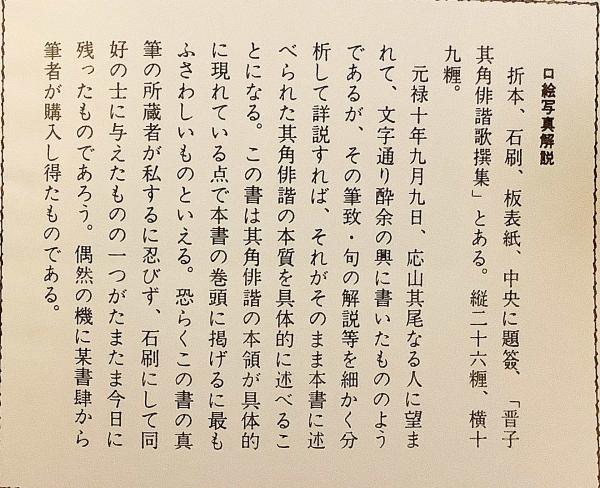 口絵写真解説
折本、石刷、板表紙、中央に題簽、「晋子
其角俳諧歌撰集」とある。縦二十六糎、横十
九糎。
元禄十年九月九日、応山其尾なる人に望ま
れて、文字通り酔余の興に書いたもののよう
であるが、その筆致・句の解説等を細かく分
析して詳説すれば、それがそのまま本書に述
べられた其角俳諧の本質を具体的に述べるこ
とになる。この書は其角俳諧の本領が具体的
に現れている点で本書の巻頭に掲げるに最も
ふさわしいものといえる。恐らくこの書の真
筆の所蔵者が私するに忍びず、石刷にして同
好の士に与えたものの一つがたまたま今日に
残ったものであろう。偶然の機に某書肆から
筆者が購入し得たものである。